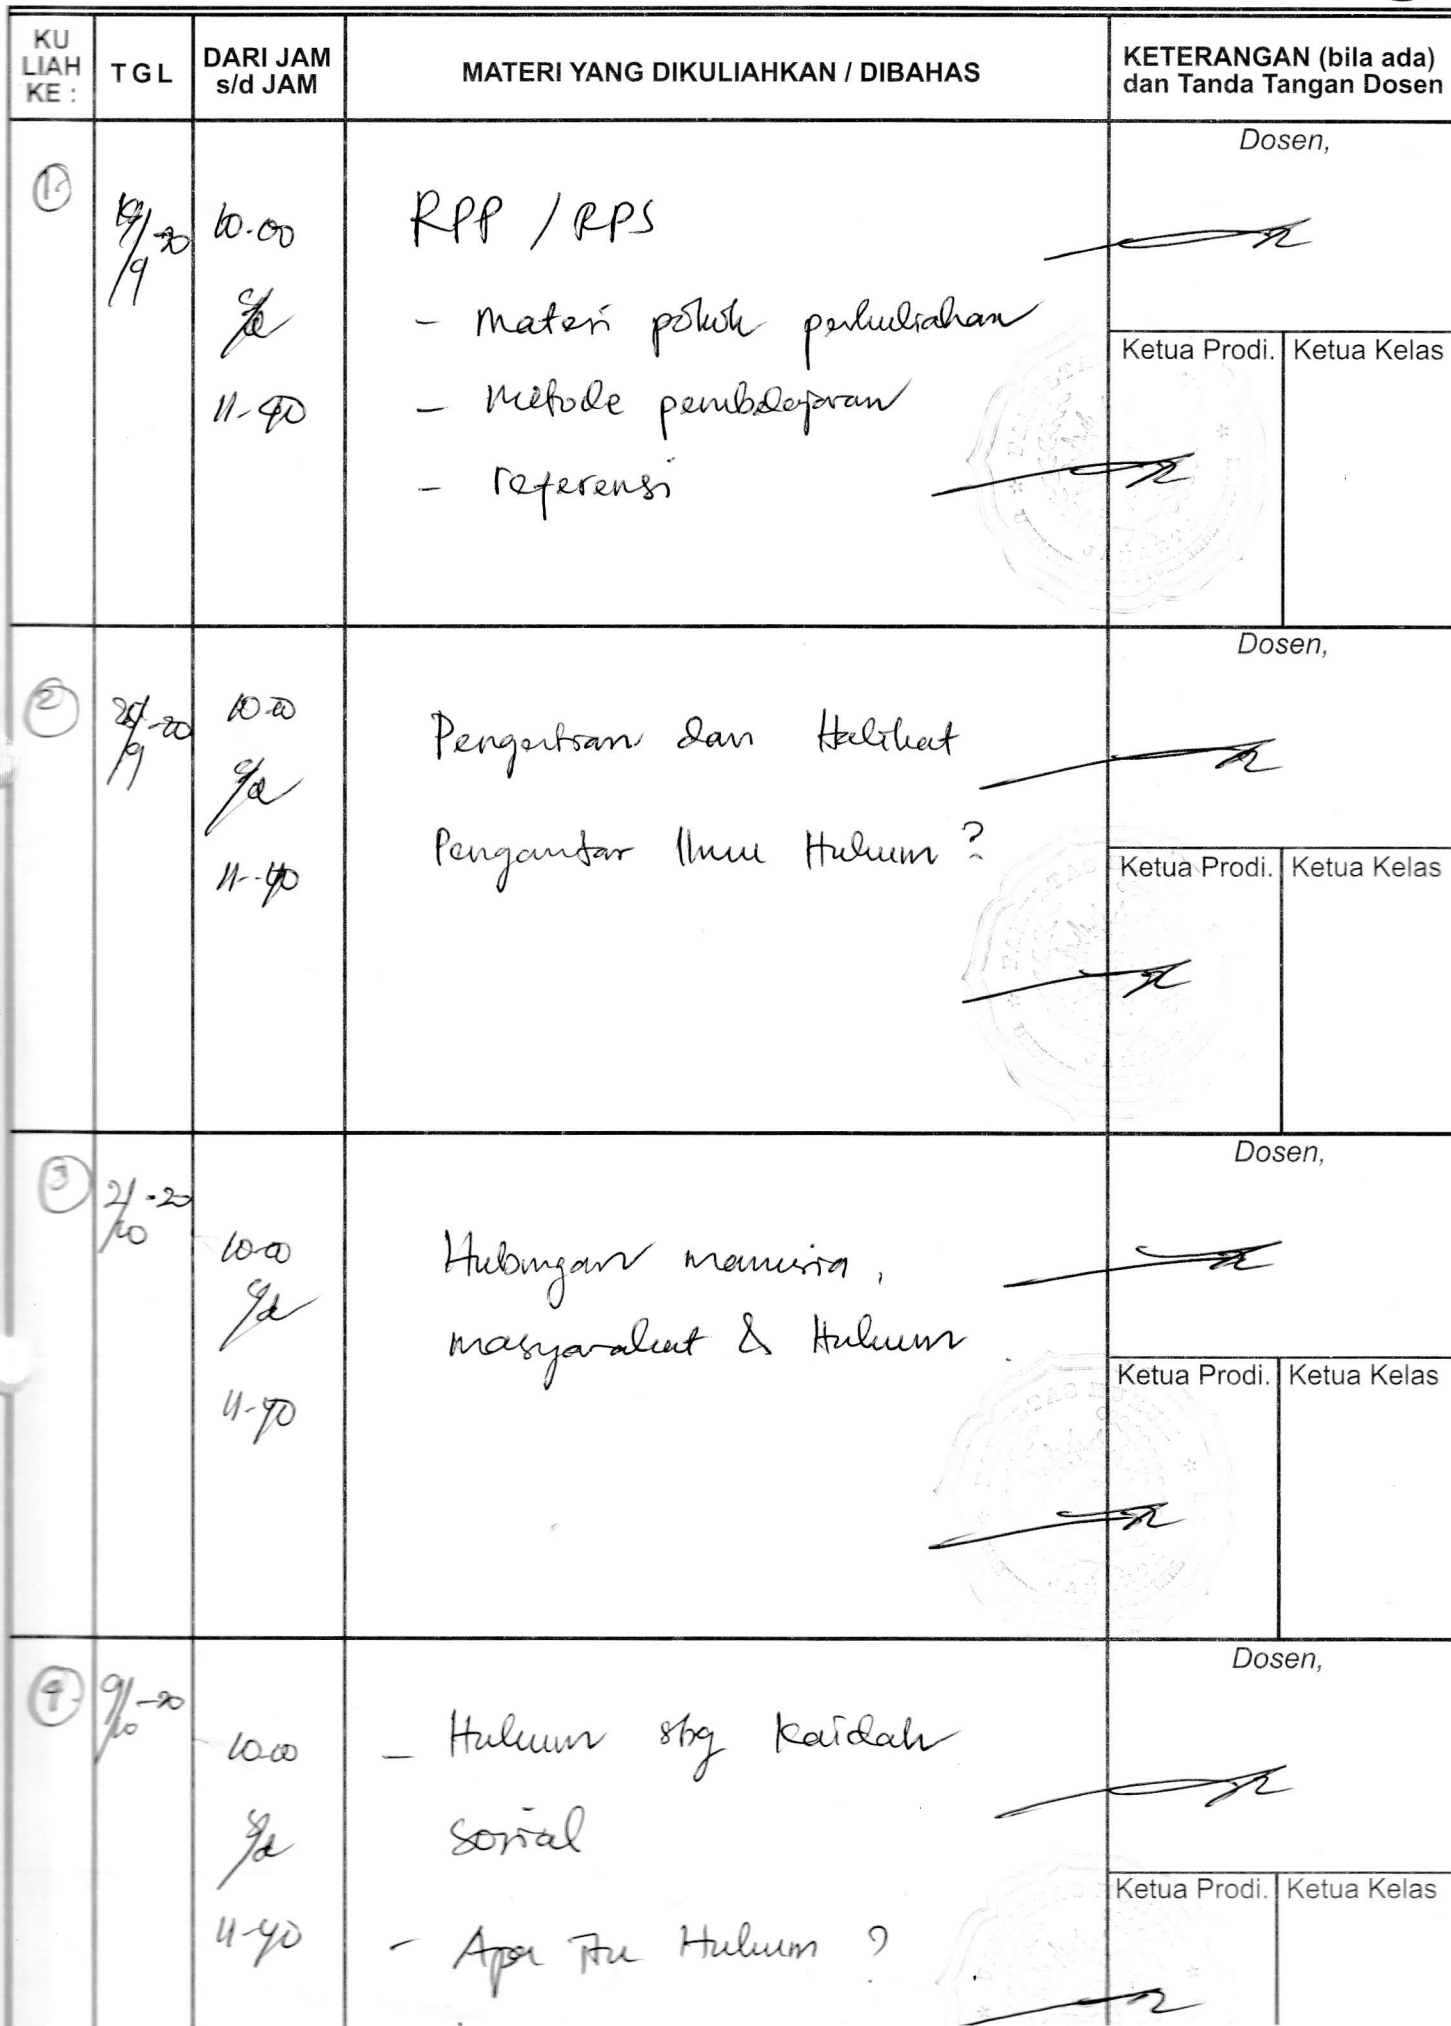 KU LIAH KE :
TGL
DARI JAM s/d JAM
MATERI YANG DIKULIAHKAN / DIBAHAS
KETERANGAN (bila ada) dan Tanda Tangan Dosen
1.
/9 -20
10.00
s/d
11-40
RPP / RPS
- Materi pokok perkuliahan
- Metode pembelajaran
- referensi
Dosen,
Ketua Prodi.
Ketua Kelas
2
/9 -20
10.00
s/d
11-40
Pengertian dan Hakikat
Pengantar Ilmu Hukum ?
Dosen,
Ketua Prodi.
Ketua Kelas
3
2/10 -20
10.00
s/d
11-40
Hubungan manusia,
masyarakat & Hukum
Dosen,
Ketua Prodi.
Ketua Kelas
4.
9/10 -20
10.00
s/d
11-40
- Hukum sbg Kaidah
sosial
- Apa itu Hukum ?
Dosen,
Ketua Prodi.
Ketua Kelas